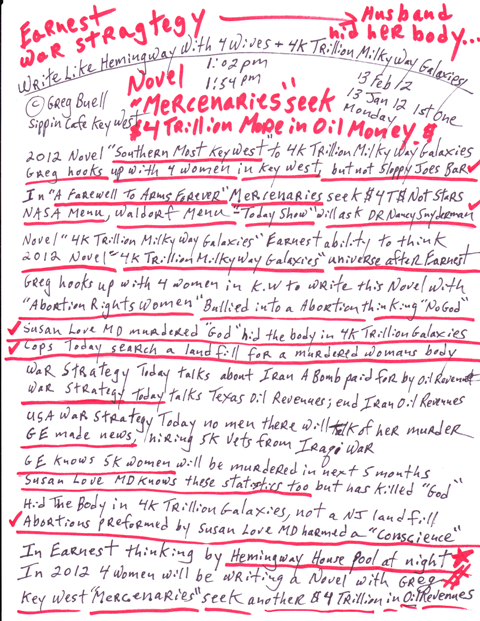 Earnest War Stragtegy → Husband hid her body...
Write Like Hemingway With 4 Wives + 4K Trillion Milky Way Galaxies
1:02 pm
1:54 pm
13 Feb 12
13 Jan 12 1st One
Monday
© Greg Buell
Sippin Cafe Key West
Novel
"Mercenaries" seek
$4 Trillion More in Oil Money $
2012 Novel "Southern Most Key West" to 4K Trillion Milky Way Galaxies
Greg hooks up with 4 women in Key West, but not Sloppy Joes Bar ✓
In "A Farewell To Arms Forever" Mercenaries seek $4T$ Not Stars
NASA Menu, Waldorf Menu - "Today Show" will ask DR Nancy Snyderman ✓
Novel "4K Trillion Milky Way Galaxies" Earnest ability to think
2012 Novel "4K Trillion Milky Way Galaxies" universe after Earnest
Greg hooks up with 4 women in K.W to write this Novel with
"Abortion Rights Women" Bullied into a Abortion thinking "No God"
✓ Susan Love MD murdered "God" hid the body in 4K Trillion Galaxies
✓ Cops Today search a landfill for a murdered womans body
War Strategy Today talks about Iran A Bomb paid for by Oil Revenues
War Strategy Today talks Texas Oil Revenues; end Iran Oil Revenues
USA War Strategy Today no men there will talk of her murder
GE made news, hiring 5K vets from Iraqi War
GE knows 5K women will be murdered in next 5 months
Susan Love MD knows these statistics too but has killed "God"
Hid The Body in 4K Trillion Galaxies, not a NJ landfill
✓ Abortions preformed by Susan Love MD harmed a "Conscience"
In Earnest thinking by Hemingway House Pool at night ★
In 2012 4 women will be writing a Novel with Greg $
Key West "Mercenaries" seek another $4 Trillion in Oil Revenues